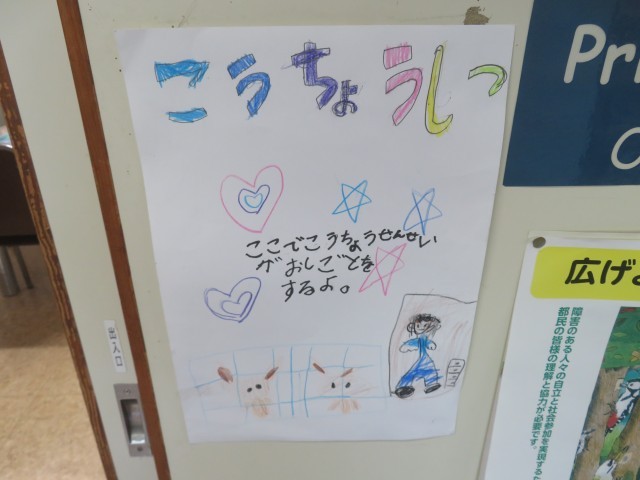 こうちょうしつ
ここでこうちょうせんせい
がおしごとを
するよ。
出入口
Pri
広げよ
障害のある人々の自立と社会参加を実現するた
都民の皆様の理解と協力が必要です。